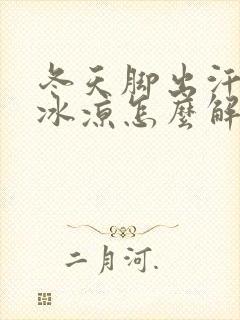 冬天脚出汗
冰凉怎麽解
二月河.